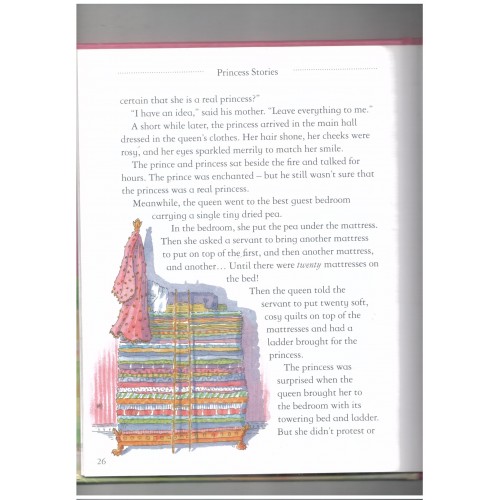 Princess Stories
certain that she is a real princess?"
"I have an idea," said his mother. "Leave everything to me."
A short while later, the princess arrived in the main hall
dressed in the queen's clothes. Her hair shone, her cheeks were
rosy, and her eyes sparkled merrily to match her smile.
The prince and princess sat beside the fire and talked for
hours. The prince was enchanted – but he still wasn't sure that
the princess was a real princess.
Meanwhile, the queen went to the best guest bedroom
carrying a single tiny dried pea.
In the bedroom, she put the pea under the mattress.
Then she asked a servant to bring another mattress
to put on top of the first, and then another mattress,
and another… Until there were twenty mattresses on
the bed!
Then the queen told the
servant to put twenty soft,
cosy quilts on top of the
mattresses and had a
ladder brought for the
princess.
The princess was
surprised when the
queen brought her to
the bedroom with its
towering bed and ladder.
But she didn't protest or
26